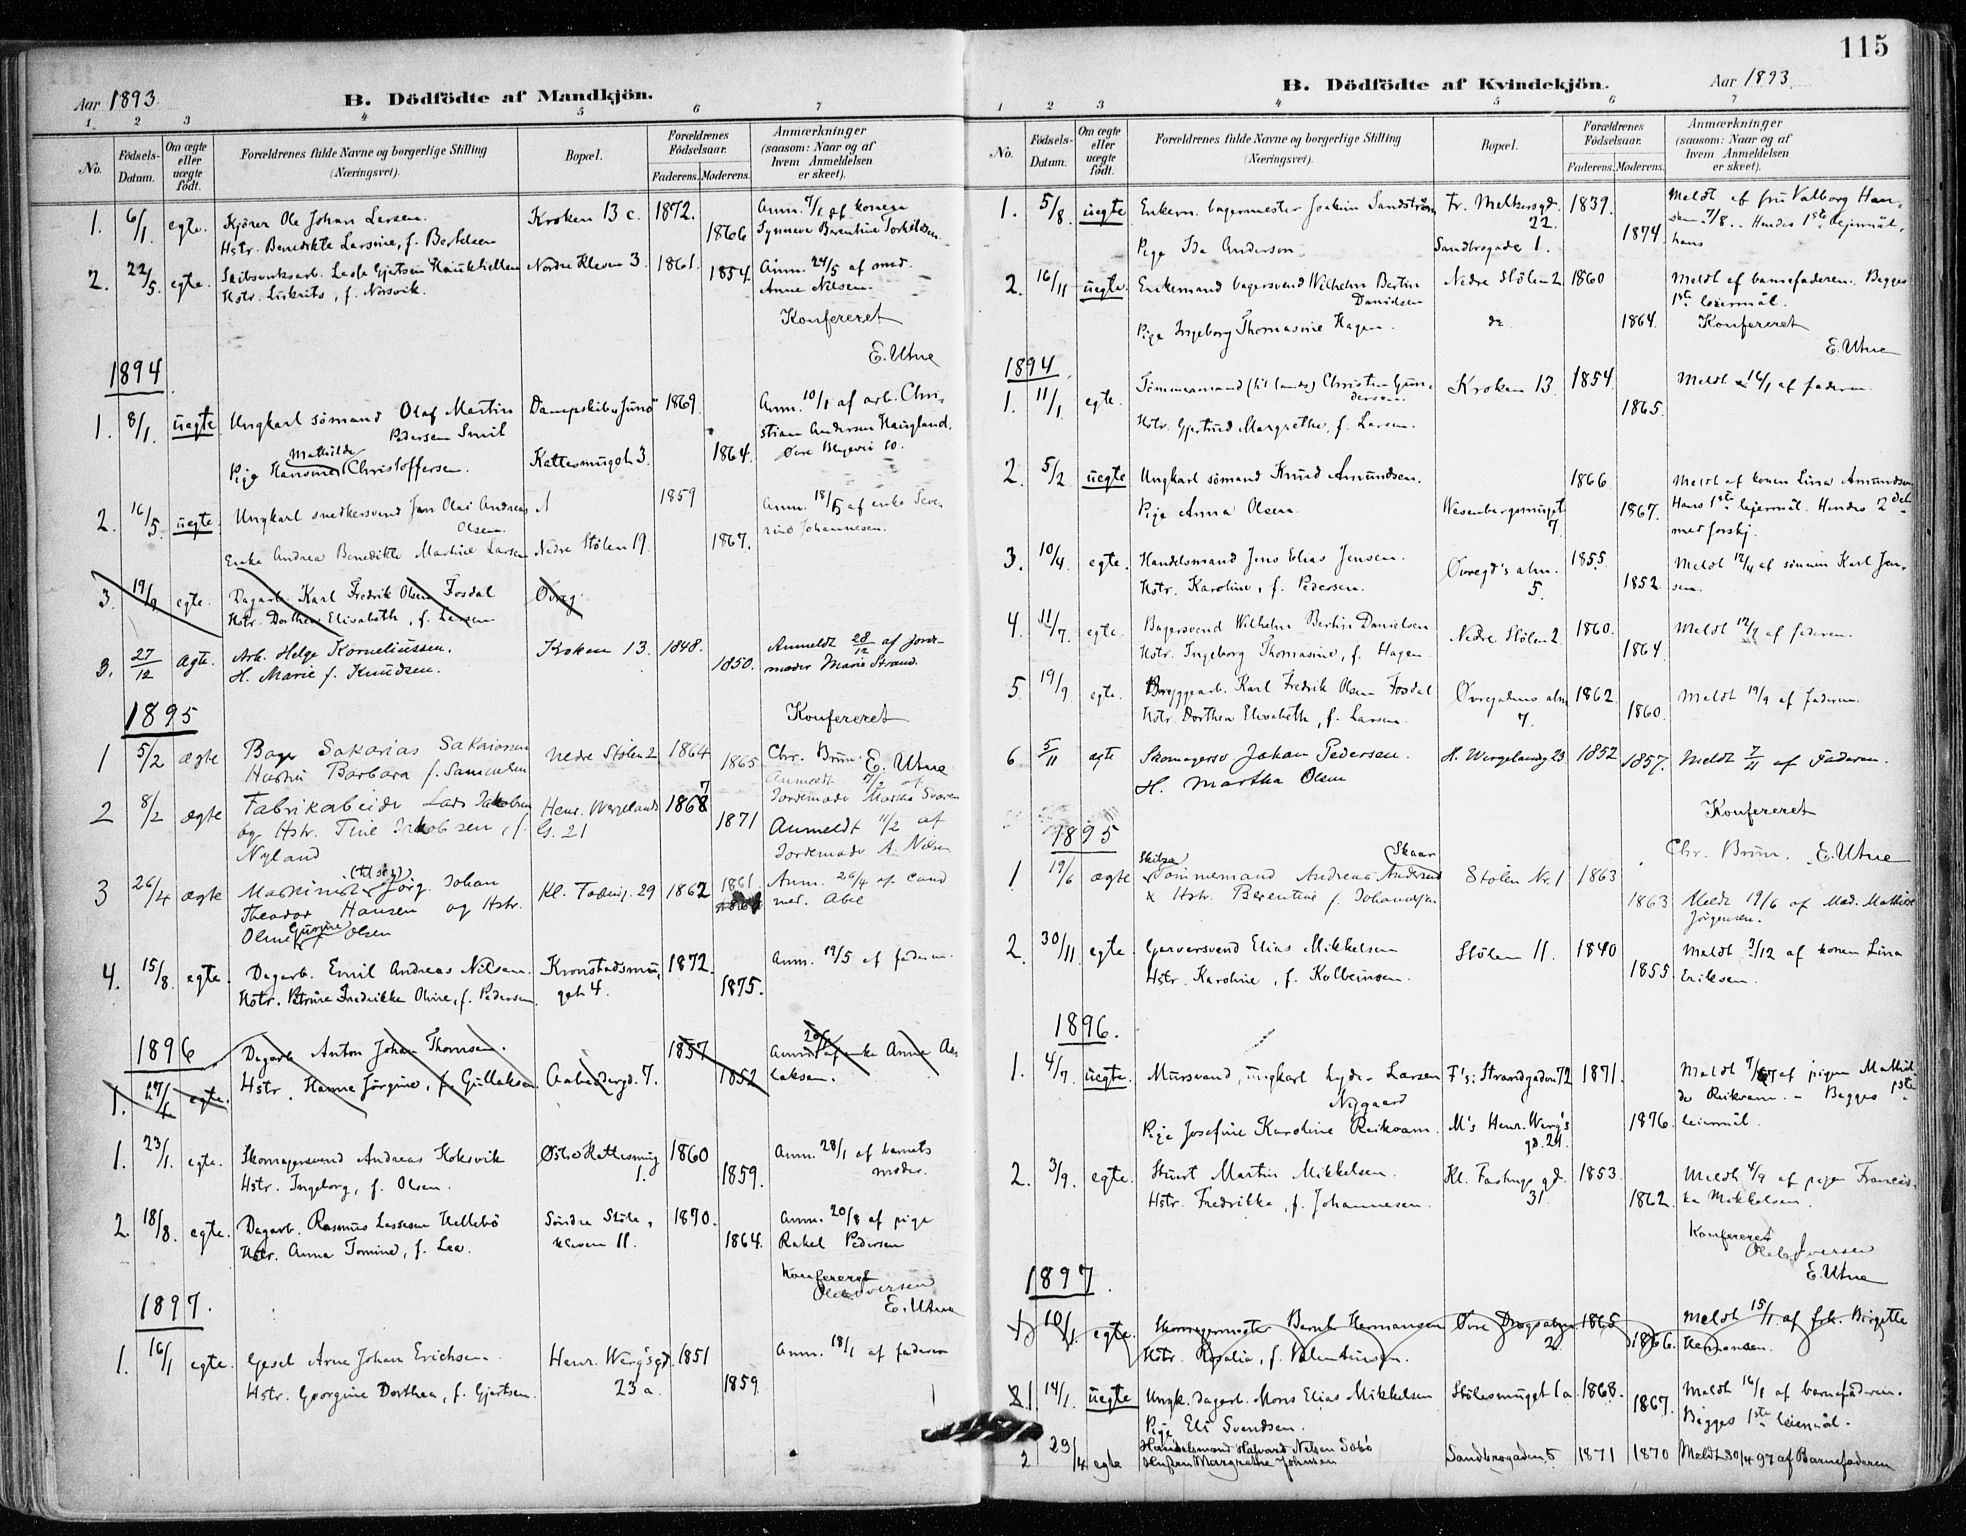 Aar 1893.
B. Dödfödte af Mandkjön.
1 2 3 4 5 6 7
No.
Födsels-Datum.
Om ægte eller uægte födt.
Forældrenes fulde Navne og borgerlige Stilling (Næringsvei).
Bopæl.
Forældrenes Födselsaar.
Faderens. Moderens.
Anmærkninger (saasom: Naar og af hvem Anmeldelsen er skeet).
1. 6/1 egte. Kjörer Ole Johan Larsen. Kroken 13 c. 1872. Anm. 7/1 af konen
Hstr. Benedikte Larsine, f. Bertelsen 1866 Synneve Berentine Torkildsen.
2. 22/5. egte. Lasse Gjertsen Nordre Kleven 3. 1861. 1854. Anm. 24/5 af
Hstr. f. Norsvik. Anne Nilsen.
Konfereret
E. Utne
1894
1. 8/1. uegte Ungkarl sömand Olaf Martin Dampskib "Juno" 1869. Anm. 10/1 af arb. Chri-
Pedersen stian Andersen Haugland.
Mathilde
Pige Christoffersen. Kattesmuget 3. 1864. Øvre
2. 16/5. uegte. Ungkarl snedkersvend Jan Olai Andreas 1859 Anm. 18/5 af enke Seve-
Olsen. rine Johannesen.
Enke Andrea Benedikte Martine Larsen Nedre Stölen 19. 1867.
3. 19/9 egte. Dagarb. Karl Fredrik Olsen Fosdal Øvreg
Hstr. Dorthea Elisabeth, f. Larsen
3. 27/12 Ægte. Arb. Helge Korneliussen. Kroken 13. 1848. Anmeldt 28/12 af Jorde-
H. Marie f. Knudsen. 1850. moder Marie Strand.
1895
Konfereret
1 5/2 ægte Sakarias Sakariassen Nedre Stölen 2 1864 1865 Chr. Brun. E. Utne
Hustru Barbara f. Samuelsen Anmeldt af
2 8/2 ægte Fabrikarbeider Lars Jakobsen Henr. Wergelands 1868 Jordemoder Martha
og Hstr. Tine Jakobsen, f. G. 21 1871 Anmeldt 11/2 af
Nyland Jordemoder A. Nilsen
3 26/4 ægte Maskinist Jörg. Johan Kl. 29 1862 1861 Anm. 26/4 af Cand
Theodor Hansen og Hstr. med.
Oline f. Olsen
4. 15/8. egte. Dagarb. Emil Andreas Nilsen. Kronstadsmu- 1872. Anm. 19/5 af faderen.
Hstr. Petrine Fredrikke Oline, f. Pedersen. get 4. 1875.
1896
Dagarb. Anton Johan Thomsen. 1857 Anm. af enke Anna As-
1. 27/1 egte. Hstr. Hanne Jörgine, f. Gullaksen. Arbeidergd. 7. 1852 laksen.
1. 23/1. egte. Skomagersvend Andreas Koksvik Østre Kattesmug 1860 Anm. 28/1 af barnets
Hstr. Ingeborg, f. Olsen. 1. 1859. moder.
2. 18/8. egte. Dagarb. Rasmus Lassesen Hellebö Söndre Stöle- 1870. Anm. 20/8 af pige
Hstr. Anna Tomine, f. Lea. kleven 11. 1864. Rakel Pedersen
Konfereret
Ole Iversen
E. Utne
1897.
1. 16/1 egte. Gesel Arne Johan Erichsen. Henr. Werg's gd. 1851 Anm. 18/1 af faderen
Hstr. Georgine Dorthea, f. Gjertsen. 23 a. 1859
115
B. Dödfödte af Kvindekjön.
Aar 1893.
1 2 3 4 5 6 7
No.
Födsels-Datum.
Om ægte eller uægte födt.
Forældrenes fulde Navne og borgerlige Stilling (Næringsvei).
Bopæl.
Forældrenes Födselsaar.
Faderens. Moderens.
Anmærkninger (saasom: Naar og af hvem Anmeldelsen er skeet).
1. 5/8. uegte Enkem. bagermester Joakim Sandström Fr. Meltzersgd. 1839. Meldt af fru Valborg Han-
22. sen 7/8. Hendes 1ste leiermål,
Pige Ida Anderson. Sandbrogaden 1. 1874. hans
2. 16/11 uegte. Enkemand bagersvend Wilhelm Bertin Nedre Stölen 2 1860 Meldt af barnefaderen. Begges
Danielsen 1ste leiermål.
Pige Ingeborg Thomasine Hagen. do. 1864. Konfereret
E. Utne
1894
1. 11/1 egte. Tömmermand (til lands) Christen Gun- Kroken 13. 1854. Meldt 12/1 af faderen
dersen.
Hstr. Gjertrud Margrethe, f. Larsen. 1865.
2. 5/2 uegte Ungkarl sömand Knud Amundsen. 1866 Meldt af konen Lina Amundsen
Pige Anna Olsen. Wesenbergsmuget 1867. Hans 1ste leiermål. Hendes 2det
7. med forskj.
3. 10/4. egte. Handelsmand Jens Elias Jensen. Øvregd's alm. 1855. Meldt 12/4 af sönnen Karl Jen-
Hstr. Karoline, f. Pedersen. 5. 1852. sen.
4. 11/7. egte. Bagersvend Wilhelm Bertin Danielsen Nedre Stölen 2 1860. Meldt 12/7 af faderen.
Hstr. Ingeborg Thomasine, f. Hagen. 1864.
5 19/9 egte. Bryggearb. Karl Fredrik Olsen Fosdal Øvregadens alm. 1862 Meldt 19/9 af faderen.
Hstr. Dorthea Elisabeth, f. Larsen. 7. 1860.
6 5/11 ægte Skomagersv Johan Pedersen. H. Wergelandsg 23 1852 1857. Meldt 7/11 af Faderen.
H. Martha Olsen
Konfereret
Chr. Brun. E. Utne
1895
Skaar
1 19/6 ægte Tömmermand Andreas Andersen Stölen Nr. 1 1863
& Hstr. Berentine f. Johannesen 1863 Meldt 19/6 af Mad. Mathilde
Jörgensen.
2. 30/11 egte. Garversvend Elias Mikkelsen Stölen 11. 1840 Meldt 3/12 af konen Lina
Hstr. Karoline, f. Kolbeinsen. 1855. Eriksen.
1896.
1. 4/7. uegte. Mursvend, ungkarl Lyder Larsen F's: Strandgaden 72 1871. Meldt af pigen Mathil-
Nygaard de Reikvam. – Begges 1ste
Pige Josefine Karoline Reikvam. M's Henr. Werg's 1876. leiermål.
gd. 24.
2. 3/9. egte. Stuert Martin Mikkelsen. Kl. gd. 1853. Meldt 4/9 af pigen Francis-
Hstr. Fredrikke, f. Johannesen. 31. 1862. ka Mikkelsen.
Konfereret
Ole Iversen
E. Utne
1897.
1 10/1 egte. Skomagermester Bernt Hermansen Øvre 1865 Meldt 15/1 af frk. Birgitte
Hstr. Rosalia, f. Valentinsen. 2 1866. Hermansen.
1 14/1. uegte Ungk. dagarb. Mons Elias Mikkelsen Stölesmuget 1 a. 1868. 1867. Meldt 16/1 af barnefaderen.
Pige Eli Svendsen. Begges 1ste leiermål.
2 29/4 egte Handelsmand Halvard Nilsen Sæbö Sandbrogaden 5 1871 1870 Meldt 30/4 97 af Barnefaderen
Hustru Margrethe Johnsen